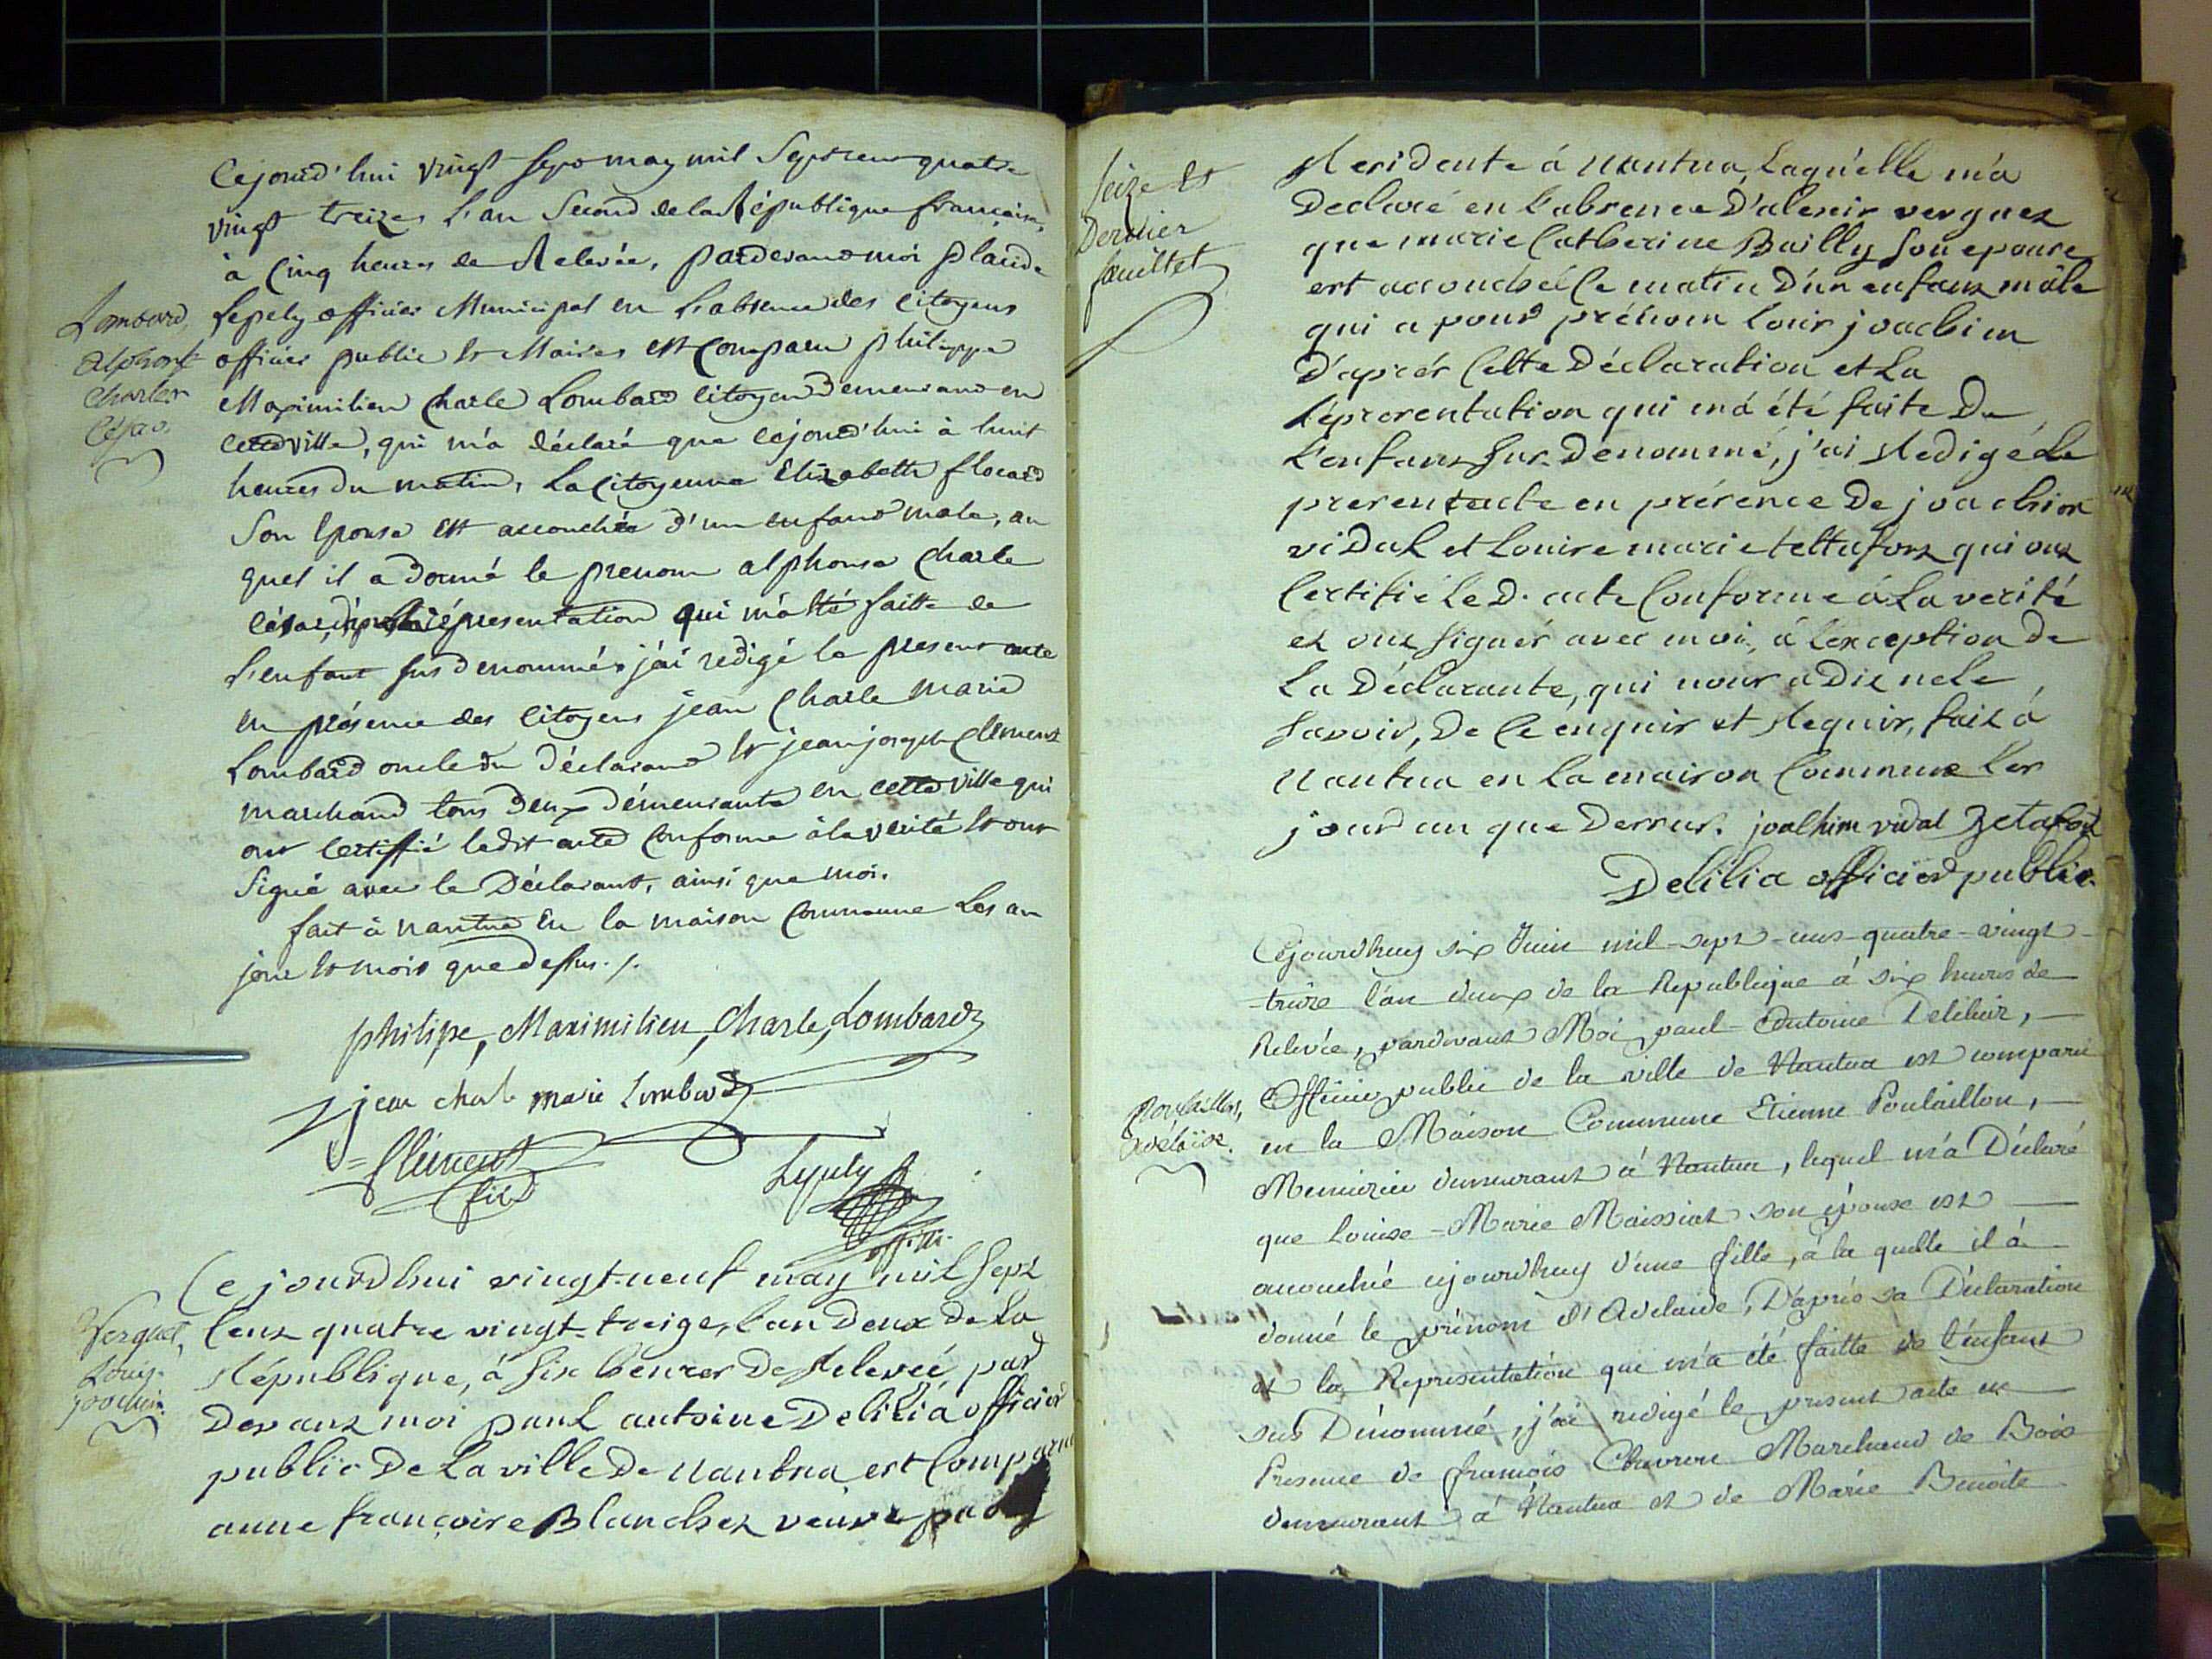 Cejourd'hui vingt sept may mil Sept cens quatre
vingt treize, L'an Second de la République françaises,
à Cinq heures de Relevée, pardevant moi Plaude
Lepely officier Municipal en L'absence des Citoyens
officier public et Maires est Comparu philippe
Maximilien Charle Lombard Citoyen Demeurant en
cette ville, qui m'a déclaré que cejourd'hui à huit
heures du matin, La Citoyenne Elizabeth flocard
Son Epouse est accouchée d'un enfant male, au
quel il a donné le prenom alphonse Charle
César, représentation qui m'a été faitte de
L'enfant sus denommé, j'ai redigé le present acte
en présence des Citoyens jean Charle Marie
Lombard oncle du Déclarant et jean joseph Clement
marchand tous Deux démeurants en cette ville qui
ont Certiffié ledit acte Conforme à la verité et ont
Signé avec le Déclarant, ainsi que moi.
fait à nantua En la maison Commune Les an
jour et mois que dessus. /.
Lombard,
alphonse
Charles
César.
philipe, Maximilien, Charle, Lombard
jean charle marie Lombard
Clément
fils
Lepely
offi.
Cejourd'hui vingt-neuf may mil Sept
Cent quatre vingt-treize, l'an Deux De La
République, à Six heures De Relevée, par
Devant moi paul antoine Delilia officier
public De La ville De nantua, est Comparue
anne françoise Blanchet veuve
Verguet,
Louis-
joachim.
Seize et
Dernier
feuillet
Residente à nantua, Laquelle m'a
Declaré en L'absence D'alexis verguet
que marie Catherine Bailly Son epouse
est accouchée Ce matin D'un enfant mâle
qui a pour prénom Louis joachim
D'après Cette Déclaration et La
Représentation qui m'a été faite De
L'enfant Sus-Denommé, j'ai Redigé Le
present acte en présence De joachim
vidal et Louise marie tettafort qui ont
Certifié Le D. acte Conforme à La verité
et ont Signés avec moi, à L'exception De
La Déclarante, qui nous a Dit ne Le
Savoir, De Ce enquis et Requis, fait à
Nantua en La maison Commune Les
jour an que Dessus. joachim vidal Zetafort
Delilia officier public.
Cejourdhuy six Juin mil-sept-cens-quatre-vingt-
-treize l'an deux de la Republique à six heures de
Relevée, pardevant Moi paul-Antoine Delilia,
Officier public de la ville de Nantua est comparu
en la Maison Commune Etienne Poulaillon,
Menuizier demeurant à Nantua, lequel m'a Déclaré
que Louise-Marie Maissiat son épouse est
accouchée cejourdhuy d'une fille, à la quelle il à
donné le prénom d'Adelaide, D'après sa Déclaration
et la Représentation qui m'a été faitte de l'enfant
sus Dénommé, j'ai redigé le present acte en
Presence de françois Chevron Marchand de Bois
demeurant à Nantua et de Marie Benoite
Poulaillon,
Adélaïde.